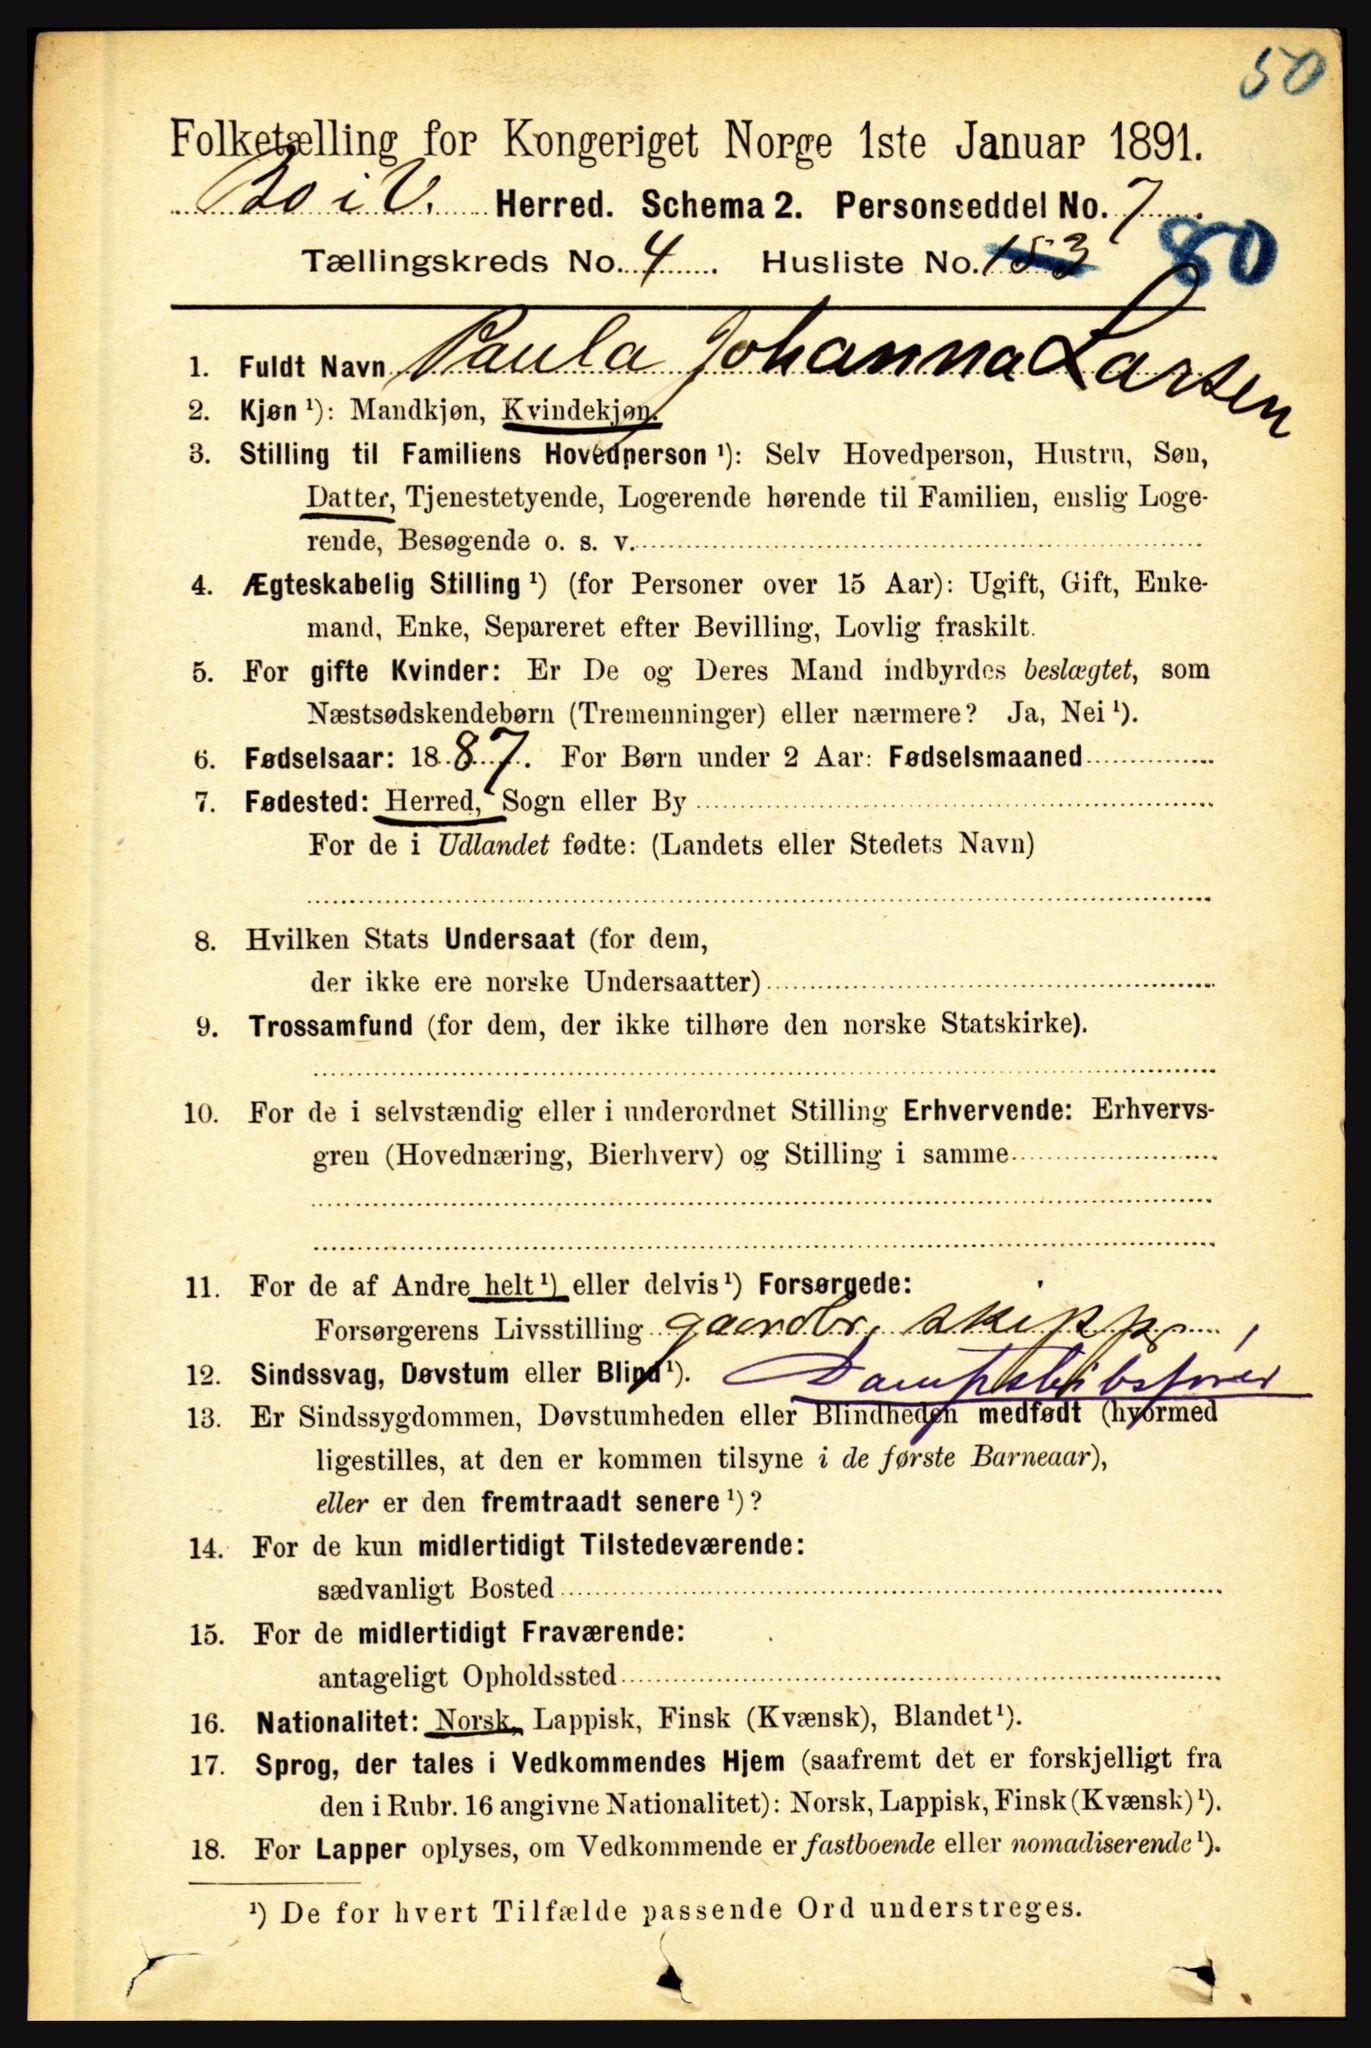 50
Folketælling for Kongeriget Norge 1ste Januar 1891.
Bo i V. Herred. Schema 2. Personseddel No. 7.
Tællingskreds No. 4. Husliste No. 153 80
1. Fuldt Navn Paula Johanna Larsen
2. Kjøn ¹): Mandkjøn, Kvindekjøn.
3. Stilling til Familiens Hovedperson ¹): Selv Hovedperson, Hustru, Søn,
Datter, Tjenestetyende, Logerende hørende til Familien, enslig Loge-
rende, Besøgende o. s. v.
4. Ægteskabelig Stilling ¹) (for Personer over 15 Aar): Ugift, Gift, Enke-
mand, Enke, Separeret efter Bevilling, Lovlig fraskilt.
5. For gifte Kvinder: Er De og Deres Mand indbyrdes beslægtet, som
Næstsødskendebørn (Tremenninger) eller nærmere? Ja, Nei ¹).
6. Fødselsaar: 1887. For Børn under 2 Aar: Fødselsmaaned
7. Fødested: Herred, Sogn eller By
For de i Udlandet fødte: (Landets eller Stedets Navn)
8. Hvilken Stats Undersaat (for dem,
der ikke ere norske Undersaatter)
9. Trossamfund (for dem, der ikke tilhøre den norske Statskirke).
10. For de i selvstændig eller i underordnet Stilling Erhvervende: Erhvervs-
gren (Hovednæring, Bierhverv) og Stilling i samme
11. For de af Andre helt ¹) eller delvis ¹) Forsørgede:
Forsørgerens Livsstilling gaardbr, skipp
12. Sindssvag, Døvstum eller Blind ¹). Dampskibsfører
13. Er Sindssygdommen, Døvstumheden eller Blindheden medfødt (hvormed
ligestilles, at den er kommen tilsyne i de første Barneaar),
eller er den fremtraadt senere ¹)?
14. For de kun midlertidigt Tilstedeværende:
sædvanligt Bosted
15. For de midlertidigt Fraværende:
antageligt Opholdssted
16. Nationalitet: Norsk, Lappisk, Finsk (Kvænsk), Blandet ¹).
17. Sprog, der tales i Vedkommendes Hjem (saafremt det er forskjelligt fra
den i Rubr. 16 angivne Nationalitet): Norsk, Lappisk, Finsk (Kvænsk) ¹).
18. For Lapper oplyses, om Vedkommende er fastboende eller nomadiserende ¹).
¹) De for hvert Tilfælde passende Ord understreges.